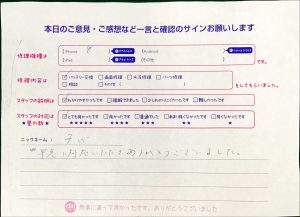 本日のご意見・ご感想など一言と確認のサインお願いします
修理機種は
iPhone 8
iPhone
Android
iPad
その他
です。
修理内容は
バッテリー交換
画面修理
水没修理
パーツ修理
相談
その他
としてもらいました。
スタッフの説明は
わかりやすかったです
理解できました
少しわかりにくかったです
難しかったです
スタッフの対応は
★星の数★
とても良かったです
良かったです
普通でした
あまり良くなかったです
良くなかったです
★★★★★
★★★★
★★★
★★
★
ニックネーム:
早急に対応いただきありがとうございました。
当店に通って良かったです。ありがとうございました